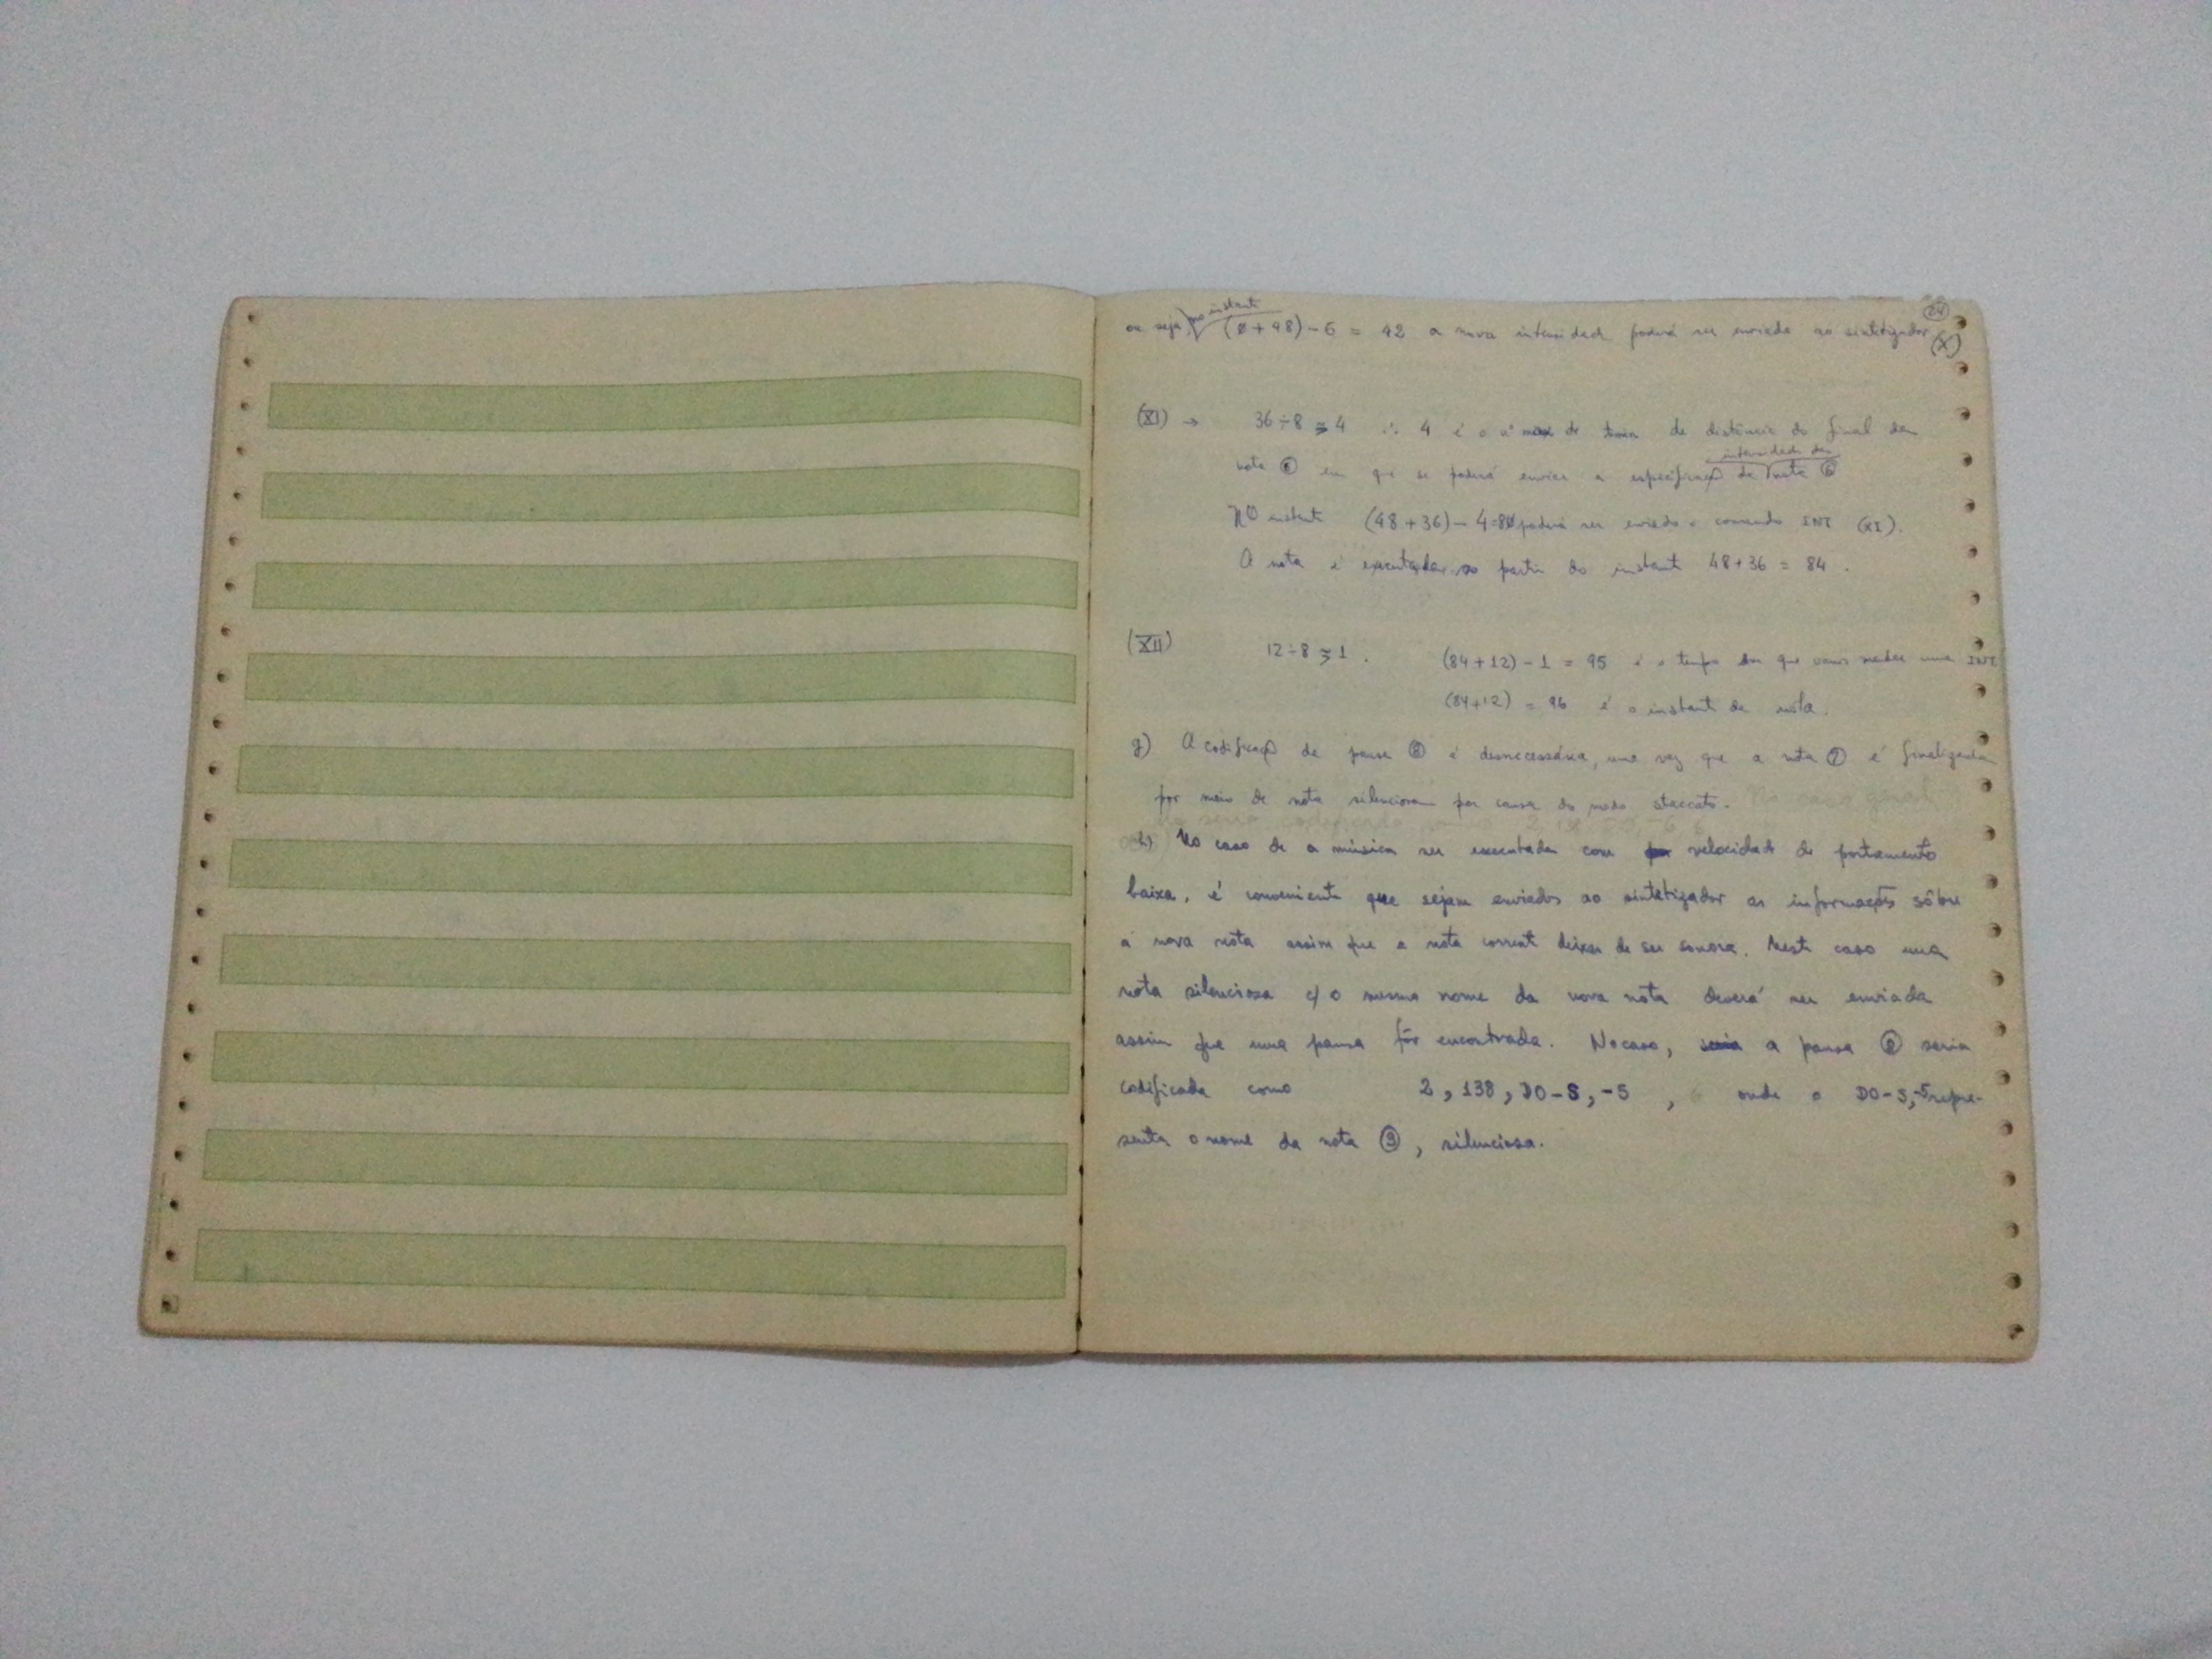 24
ou seja, no instante (0+48)-6 = 42 a nova intensidade poderá ser enviada ao sintetizador (X)
(XI) → 36÷8 ≅ 4 ∴ 4 é o nº de de distância do final da
nota ⑤ em que se poderá enviar a especificaç de intensidade da nota ⑥
NO instante (48+36)-4=80 poderá ser enviado o comando INT (XI).
A nota é executada a partir do instant 48+36 = 84.
(XII) 12÷8 ≅ 1. (84+12)-1 = 95 é o tempo em que vamos mandar uma INT
(84+12) = 96 é o instant da nota.
g) A codificaç da pausa ⑧ é desnecessária, uma vez que a nota ⑦ é finalizada
por meio de nota silenciosa por causa do modo staccato.
h) No caso de a música ser executada com velocidade de portamento
baixa, é conveniente que sejam enviados ao sintetizador as informações sôbre
a nova nota assim que a nota corrent deixar de ser sonora. Nest caso uma
nota silenciosa c/ o mesmo nome da nova nota deverá ser enviada
assim que uma pausa fôr encontrada. No caso, a pausa ⑧ seria
codificada como 2, 138, DO-S, -5, onde o DO-S, repre-
senta o nome da nota ⑨, silenciosa.